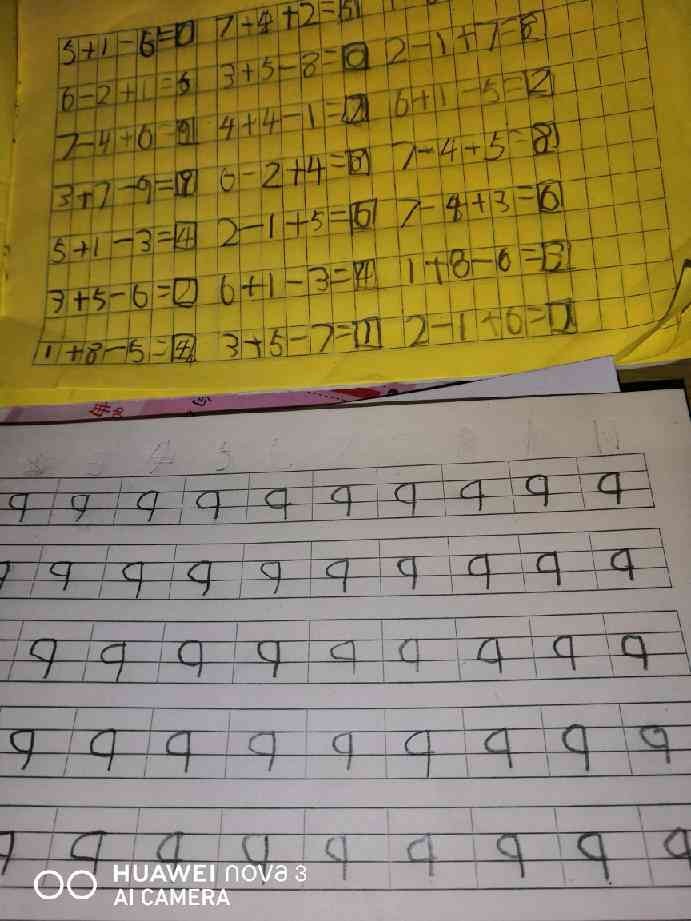 5+1-6=0 7-4+2=5
6-2+1=5 3+5-8=0 2-1+7=8
7-4+6=9 4+4-1=7 6+1-5=2
3+7-9= 6-2+4=8 7-4+5=8
5+1-3=4 2-1+5=6 7-4+3=6
3+5-6=2 6+1-3=4 1+8-6=3
1+8-5=4 3+5-7=1 2-1+6=7
9 9 9 9 9 9 9 9 9 9
9 9 9 9 9 9 9 9 9
9 9 9 9 9 9 9 9 9
9 9 9 9 9 9 9 9 9
9 9 9 9 9 9 9 9 9
HUAWEI nova 3
AI CAMERA